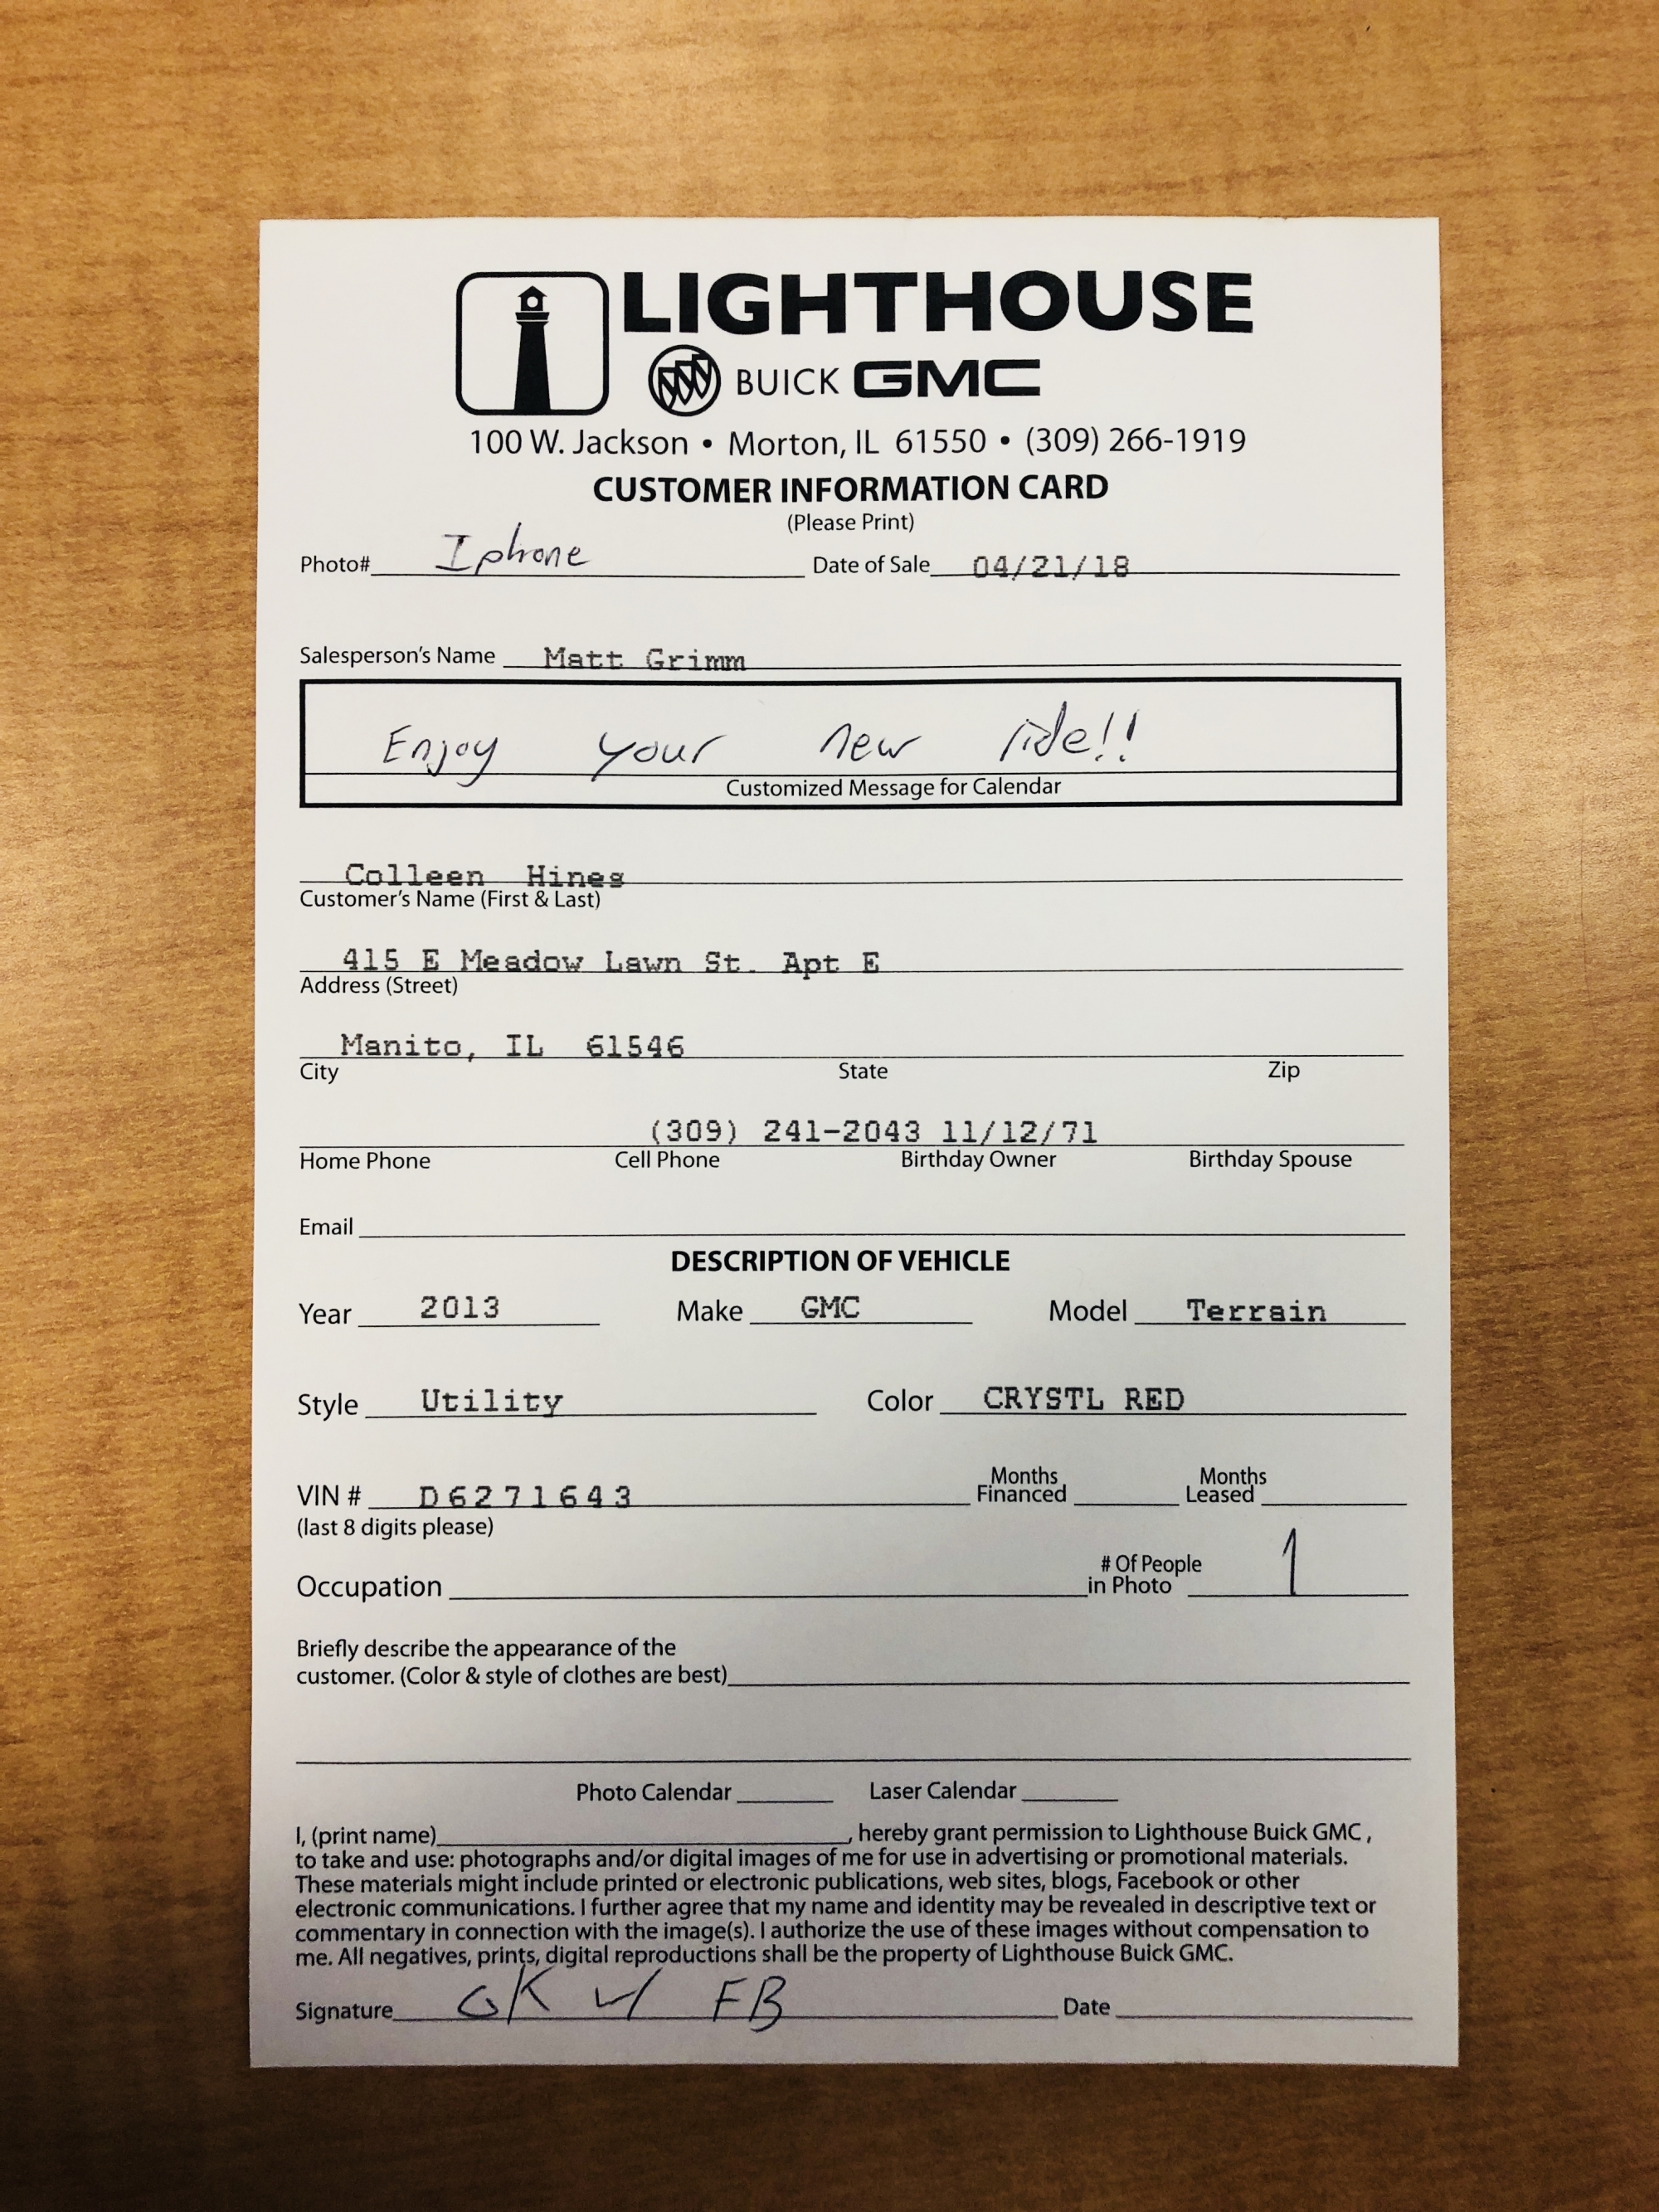 LIGHTHOUSE
BUICK GMC
100 W. Jackson • Morton, IL 61550 • (309) 266-1919
CUSTOMER INFORMATION CARD
(Please Print)
Photo# Iphone Date of Sale 04/21/18
Salesperson's Name Matt Grimm
Enjoy your new ride!!
Customized Message for Calendar
Colleen Hines
Customer's Name (First & Last)
415 E Meadow Lawn St. Apt E
Address (Street)
Manito, IL 61546
City State Zip
(309) 241-2043 11/12/71
Home Phone Cell Phone Birthday Owner Birthday Spouse
Email
DESCRIPTION OF VEHICLE
Year 2013 Make GMC Model Terrain
Style Utility Color CRYSTL RED
VIN # D6271643 Months Financed Months Leased
(last 8 digits please)
Occupation # Of People in Photo 1
Briefly describe the appearance of the
customer. (Color & style of clothes are best)
Photo Calendar Laser Calendar
I, (print name) , hereby grant permission to Lighthouse Buick GMC ,
to take and use: photographs and/or digital images of me for use in advertising or promotional materials.
These materials might include printed or electronic publications, web sites, blogs, Facebook or other
electronic communications. I further agree that my name and identity may be revealed in descriptive text or
commentary in connection with the image(s). I authorize the use of these images without compensation to
me. All negatives, prints, digital reproductions shall be the property of Lighthouse Buick GMC.
Signature OK w/ FB Date